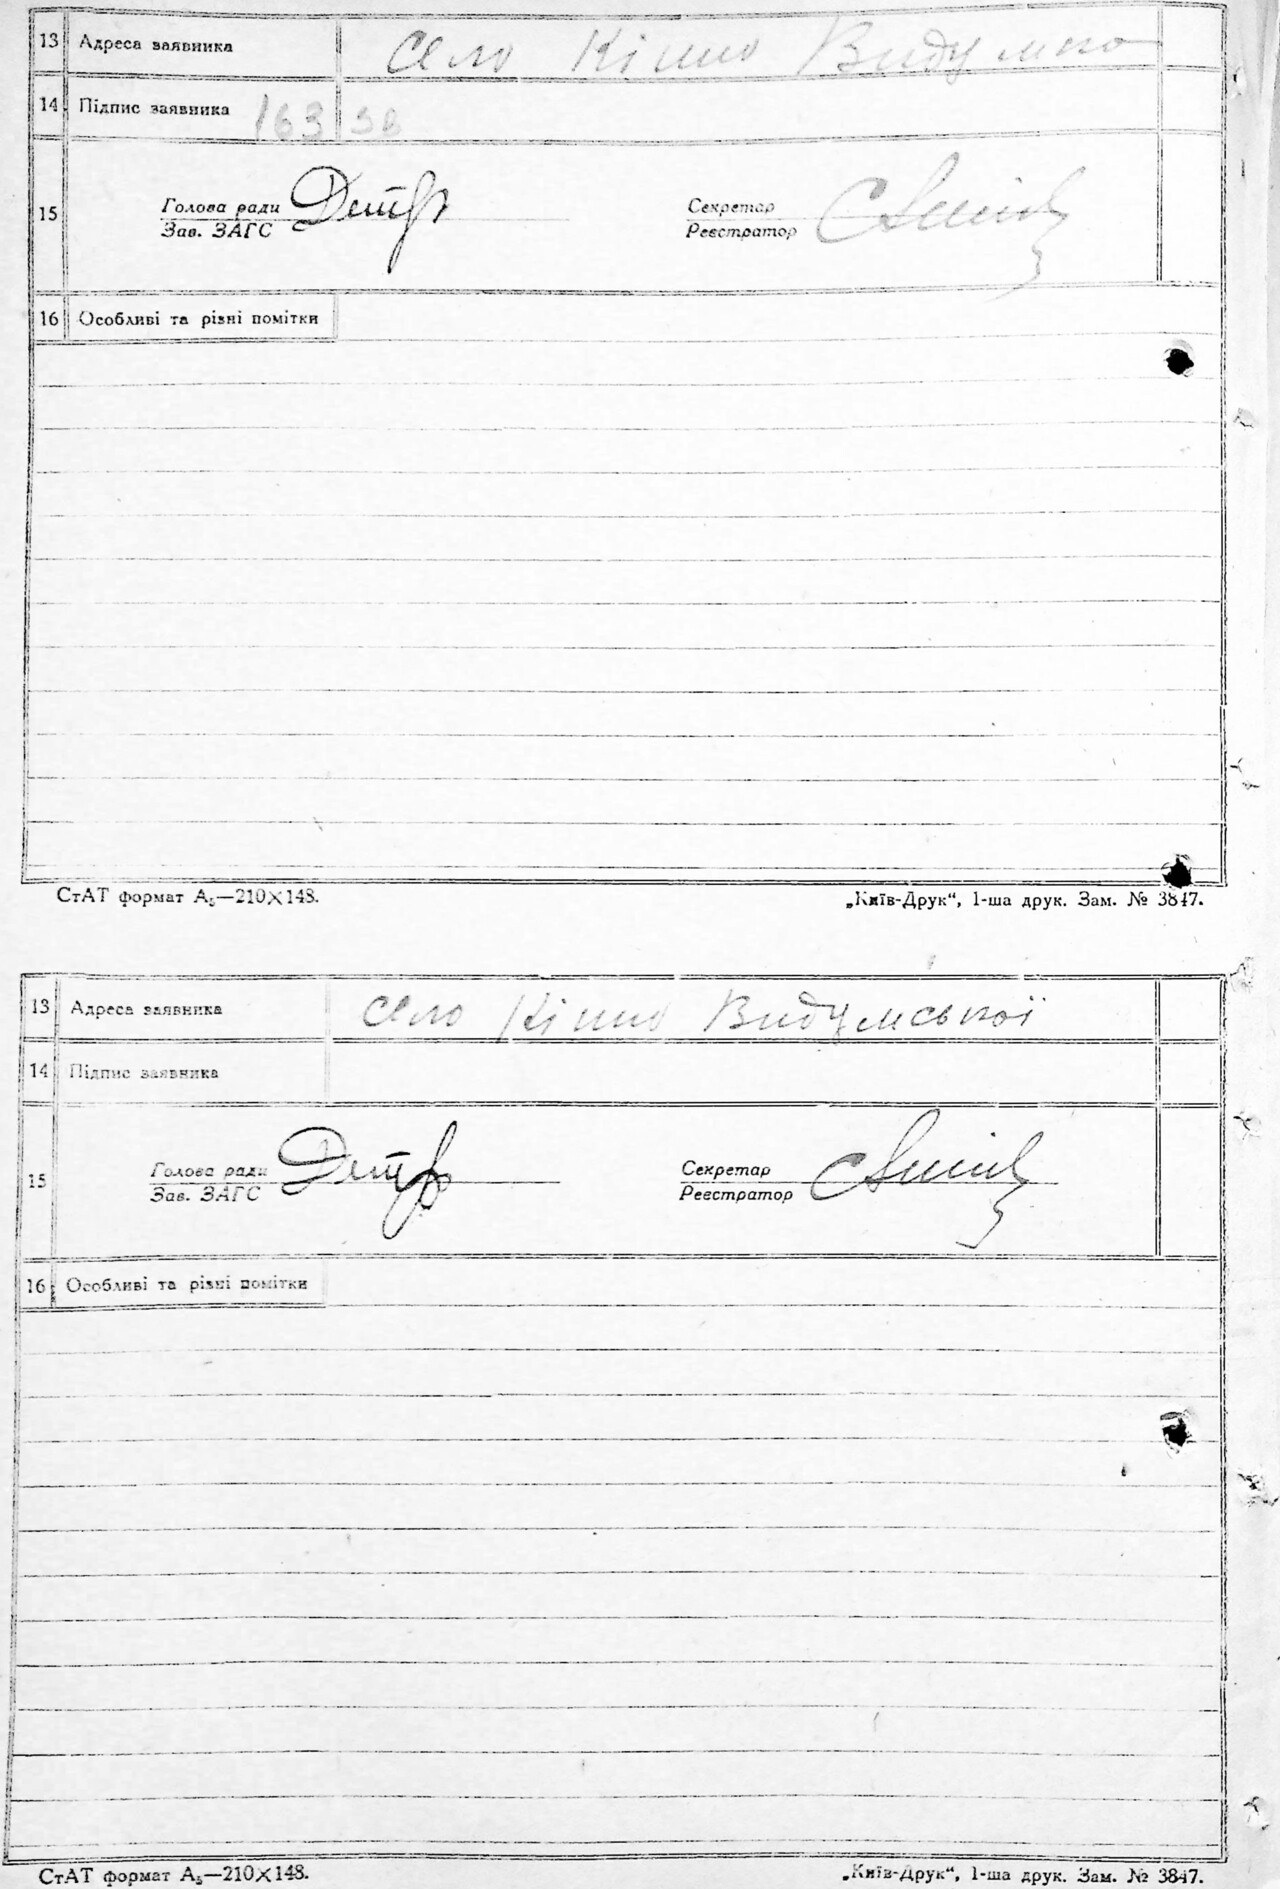 13 Адреса заявника Село Кішно Видумко
14 Підпис заявника 163 зв
15 Голова ради Секретар
Зав. ЗАГС Реєстратор
16 Особливі та різні помітки
СтАТ формат А₅—210×148. „Київ-Друк“, 1-ша друк. Зам. № 3847.
13 Адреса заявника Село Кішно Видумської
14 Підпис заявника
15 Голова ради Секретар
Зав. ЗАГС Реєстратор
16 Особливі та різні помітки
СтАТ формат А₅—210×148. „Київ-Друк“, 1-ша друк. Зам. № 3847.